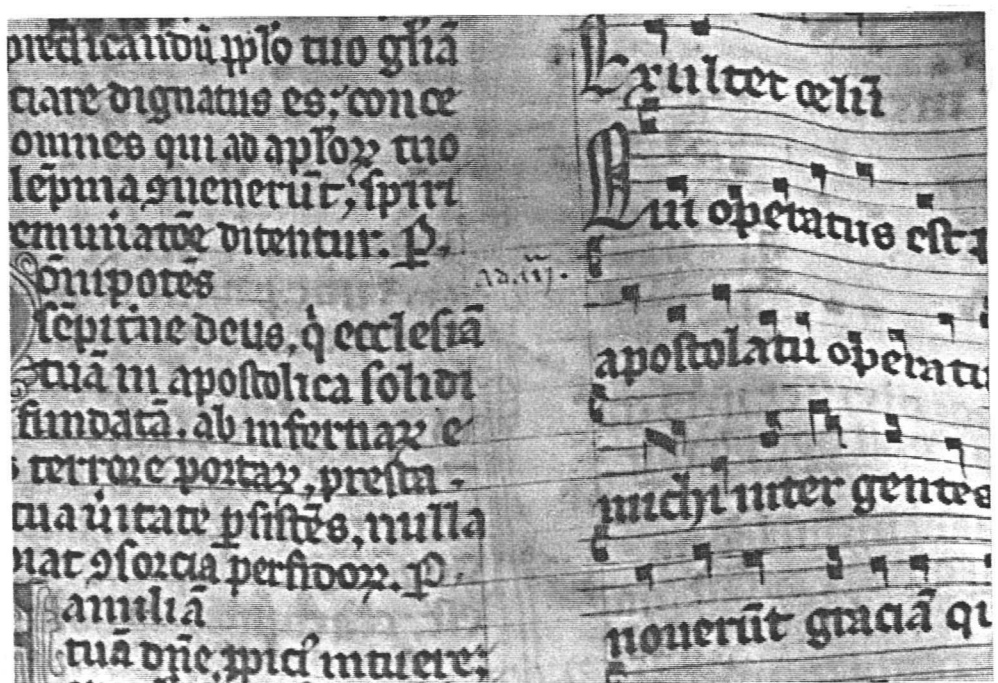 predicandū ꝓplo tuo glīa
ciare dignatus es; conce
omnes qui ad aplōꝝ tuo
lēpnia ꝯuenerūt; spiri
emunatōe ditentur. P.
ōnipotēs
sēpitne deus, q̇ ecclesiā
tuā in apostolica solidi
fundatā. ab infernaꝝ e
terrore portaꝝ, presta.
tua uitate ꝑsistēs, nulla
piat ꝯsorcia perfidoꝝ. P.
amiliā
tuā dn̄e intuere;
Ad.iij.
Exultet celū
Qui operatus est
apostolatū operatu
michi inter gentes
nouerūt graciā qu